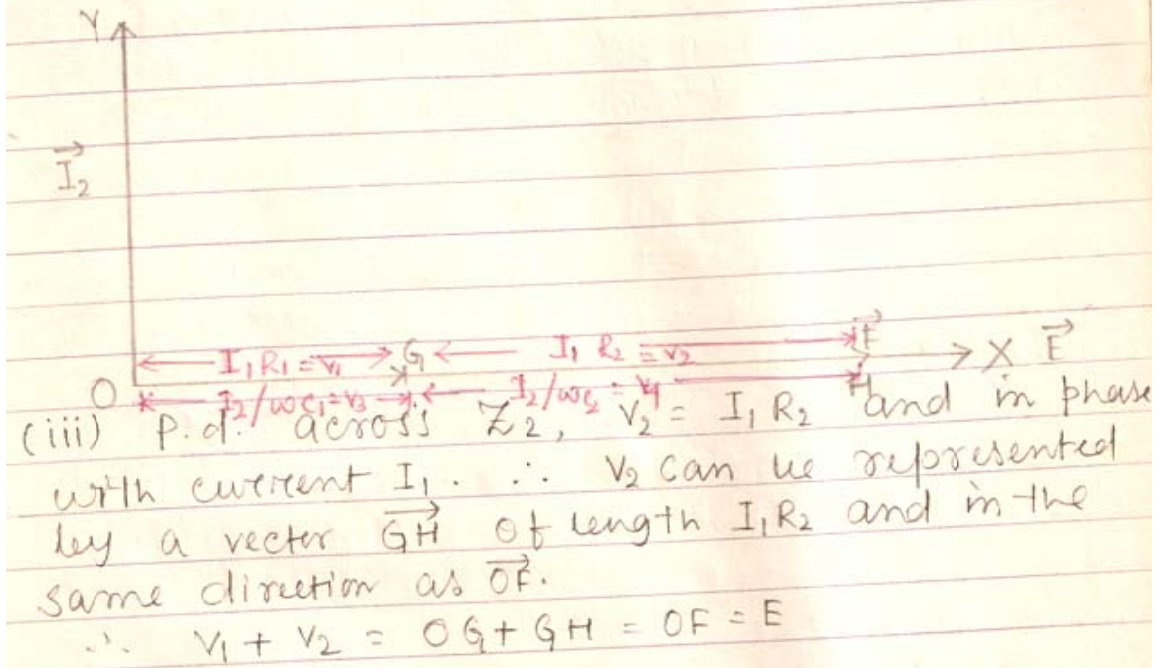 Y
I₂
I₁R₁ = V₁ G I₁ R₂ = V₂ F X E
O I₂/ωC₁ = V₃ I₂/ωC₂ = V₄ H
(iii) P.d. across Z₂, V₂ = I₁ R₂ and in phase
with current I₁. ∴ V₂ can be represented
by a vector GH of length I₁R₂ and in the
same direction as OF.
∴ V₁ + V₂ = OG + GH = OF = E